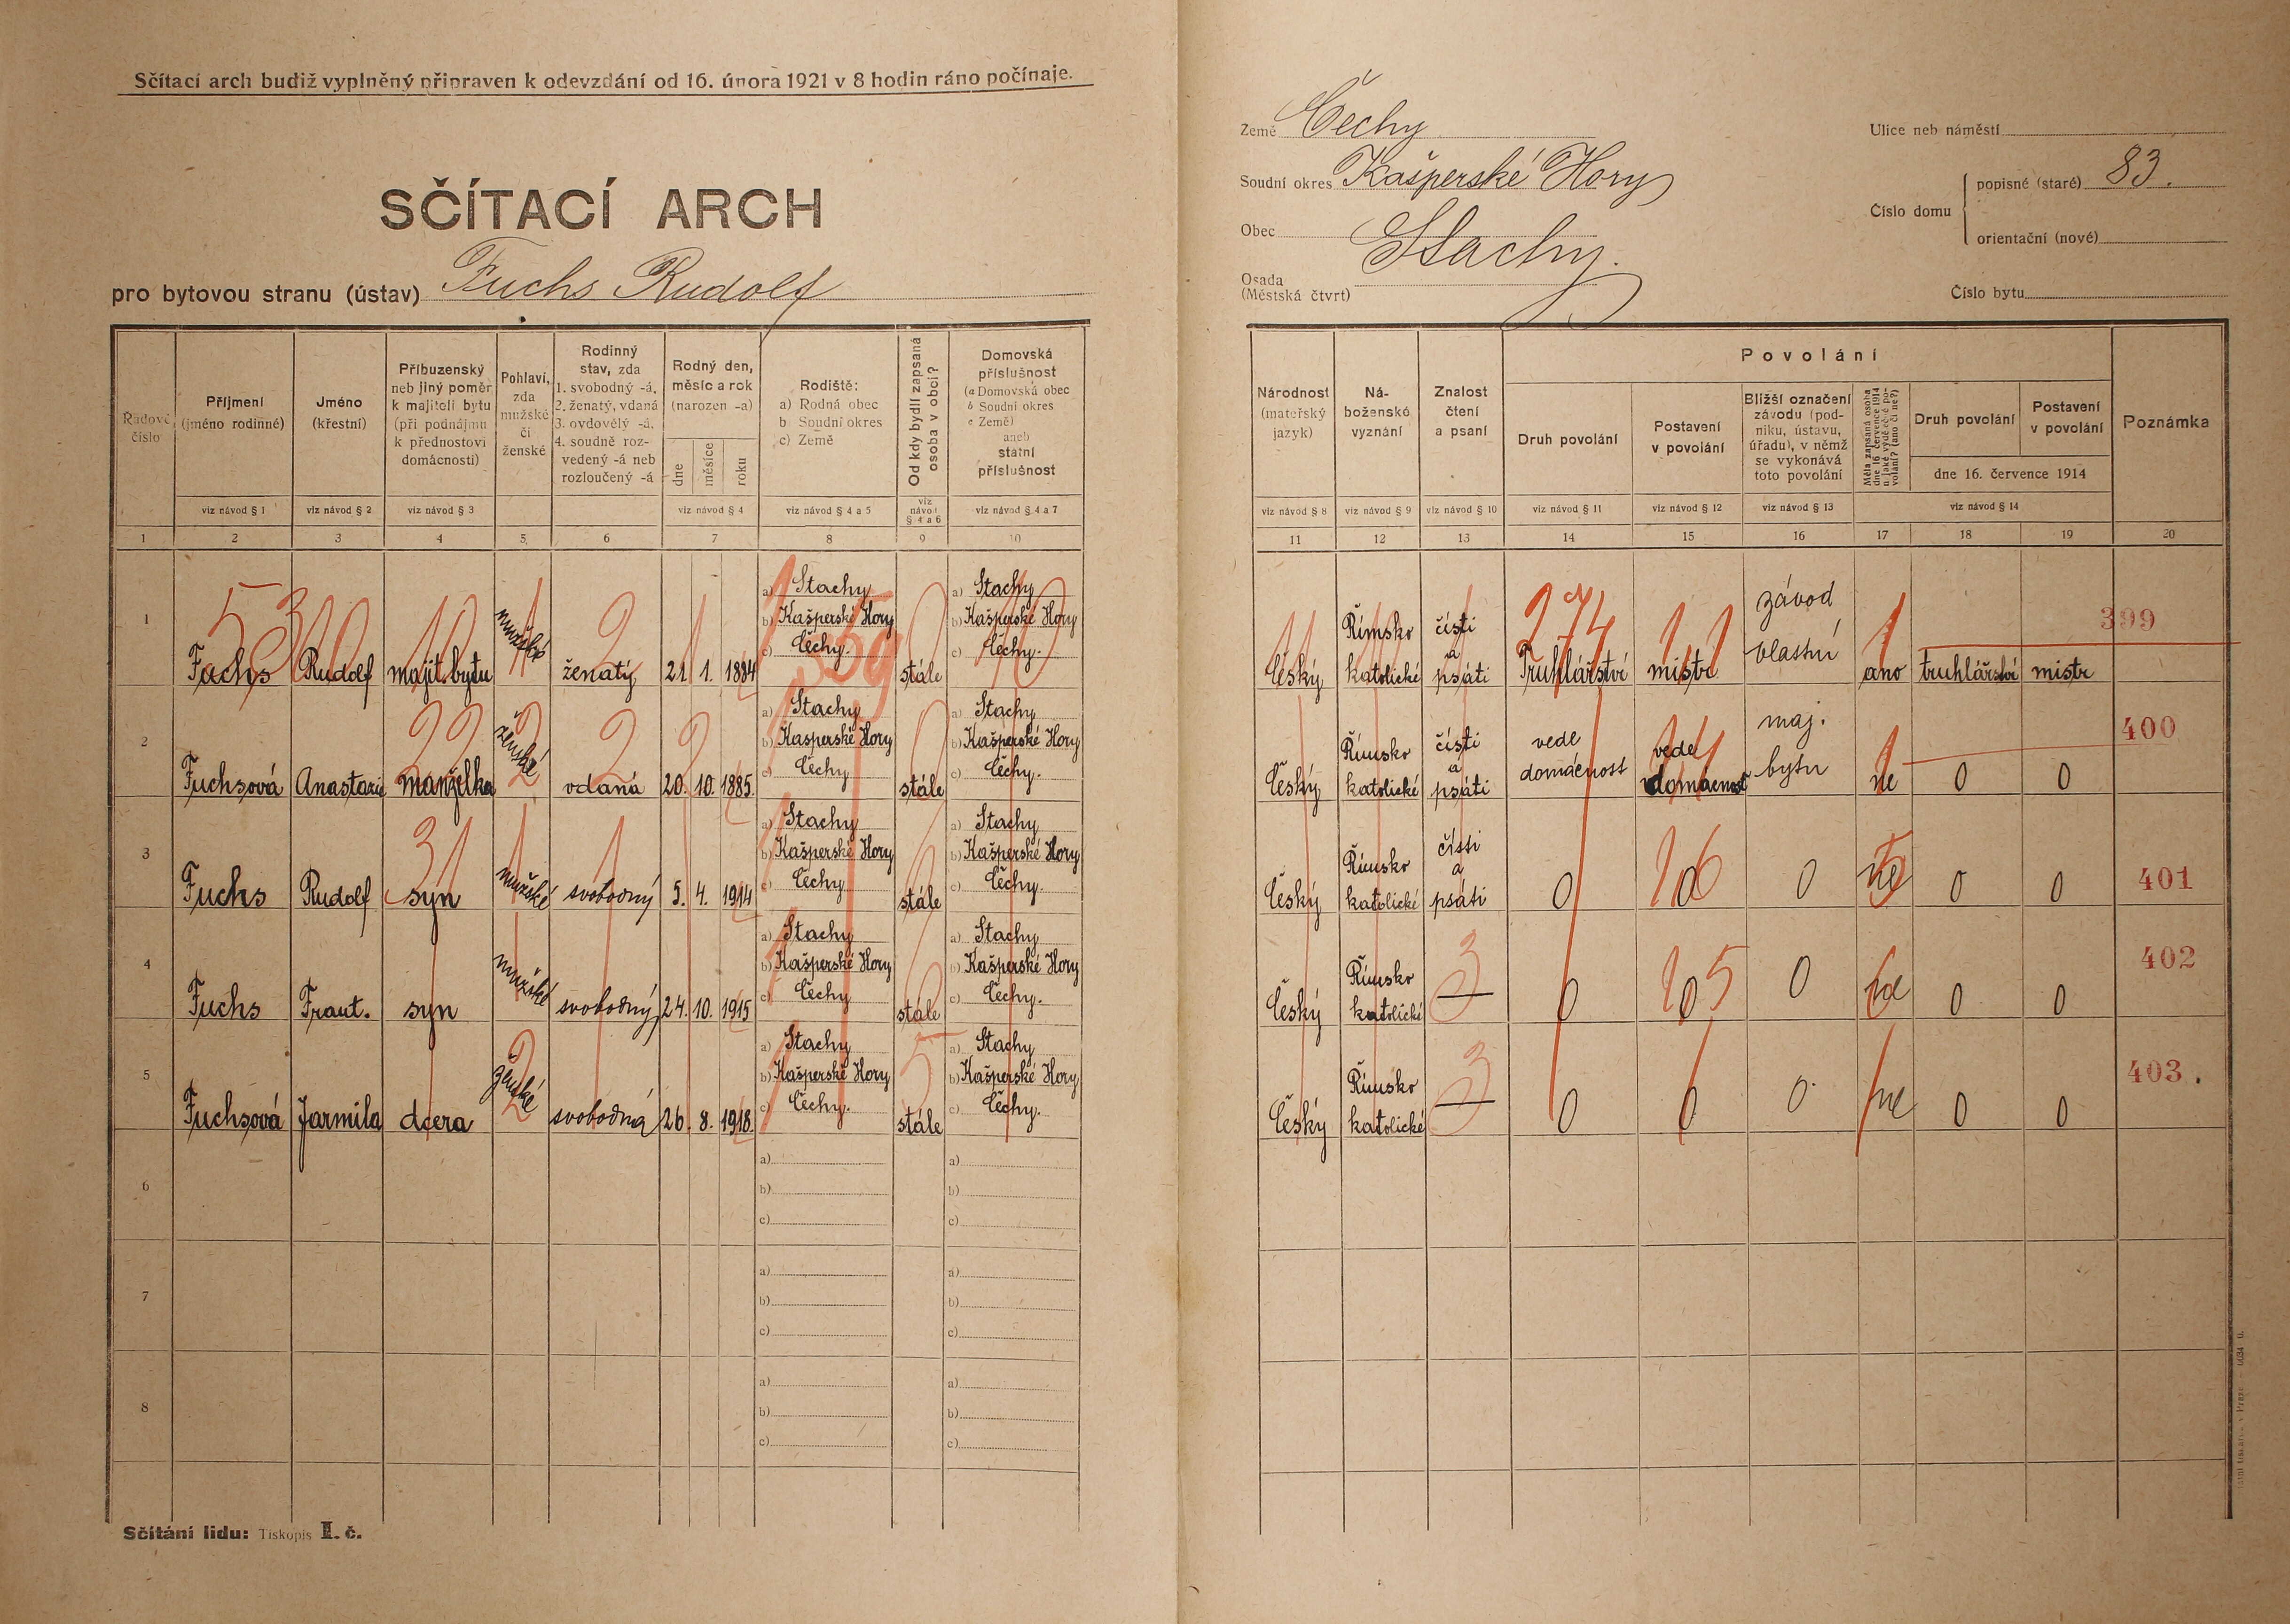 Sčítací arch budiž vyplněný připraven k odevzdání od 16. února 1921 v 8 hodin ráno počínaje.
SČÍTACÍ ARCH
pro bytovou stranu (ústav) Fuchs Rudolf
Země Čechy
Soudní okres Kašperské Hory
Obec Stachy.
Osada
(Městská čtvrť)
Ulice neb náměstí
Číslo domu
popisné (staré) 83.
orientační (nové)
Číslo bytu
Řadové číslo
Příjmení (jméno rodinné)
Jméno (křestní)
Příbuzenský neb jiný poměr k majiteli bytu (při podnájmu k přednostovi domácnosti)
Pohlaví, zda mužské či ženské
Rodinný stav, zda 1. svobodný -á, 2. ženatý, vdaná 3. ovdovělý -á, 4. soudně rozvedený -á neb rozloučený -á
Rodný den, měsíc a rok (narozen -a)
dne měsíce roku
Rodiště: a) Rodná obec b) Soudní okres c) Země
Od kdy bydlí zapsaná osoba v obci?
Domovská příslušnost (a Domovská obec b Soudní okres c Země) aneb státní příslušnost
viz návod § 1 viz návod § 2 viz návod § 3 viz návod § 4 viz návod § 4 a 5 viz návod § 4 a 6 viz návod § 4 a 7
1 2 3 4 5 6 7 8 9 10
Národnost (mateřský jazyk)
Náboženské vyznání
Znalost čtení a psaní
Povolání
Druh povolání
Postavení v povolání
Bližší označení závodu (podniku, ústavu, úřadu), v němž se vykonává toto povolání
Měla zapsaná osoba dne 16. července 1914 nějaké výdělečné povolání? (ano či ne?)
Druh povolání
Postavení v povolání
dne 16. července 1914
Poznámka
viz návod § 8 viz návod § 9 viz návod § 10 viz návod § 11 viz návod § 12 viz návod § 13 viz návod § 14
11 12 13 14 15 16 17 18 19 20
1 Fuchs Rudolf majit. bytu mužské ženatý 21. 1. 1884 a) Stachy b) Kašperské Hory c) Čechy. stále a) Stachy b) Kašperské Hory c) Čechy.
Český Římsko katolické čísti a psáti 274 Truhlářství mistr závod vlastní ano truhlářství mistr 399
2 Fuchsová Anastazie manželka ženské vdaná 20. 10. 1885. a) Stachy b) Kašperské Hory c) Čechy stále a) Stachy b) Kašperské Hory c) Čechy.
Český Římsko katolické čísti a psáti vede domácnost vede domácnost maj. bytu ne 0 0 400
3 Fuchs Rudolf syn mužské svobodný 5. 4. 1914 a) Stachy b) Kašperské Hory c) Čechy stále a) Stachy b) Kašperské Hory c) Čechy.
Český Římsko katolické čísti a psáti 0 0 0 ne 0 0 401
4 Fuchs Frant. syn mužské svobodný 24. 10. 1915 a) Stachy b) Kašperské Hory c) Čechy stále a) Stachy b) Kašperské Hory c) Čechy.
Český Římsko katolické — 0 0 0 ne 0 0 402
5 Fuchsová Jarmila dcera ženské svobodná 26. 8. 1918. a) Stachy b) Kašperské Hory c) Čechy. stále a) Stachy b) Kašperské Hory c) Čechy.
Český Římsko katolické — 0 0 0 ne 0 0 403.
6 a) b) c) a) b) c)
7 a) b) c) a) b) c)
8 a) b) c) a) b) c)
Sčítání lidu: Tiskopis I. č.